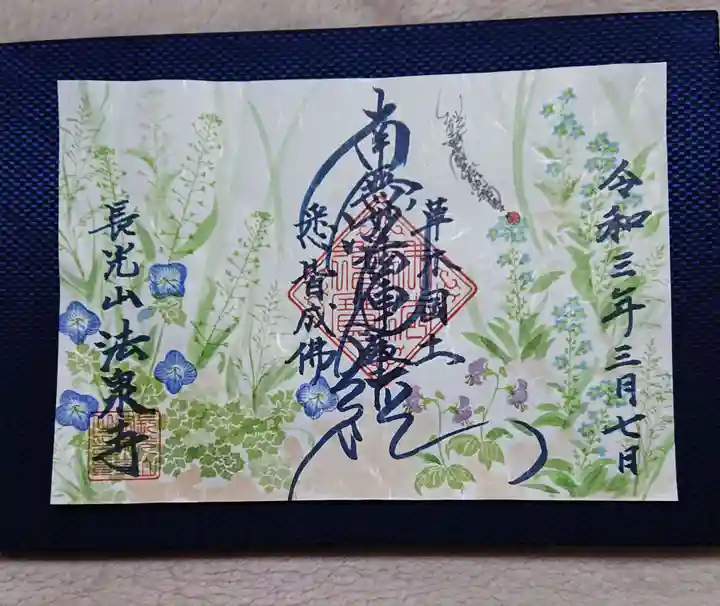 令和三年三月七日
草木国土
南無妙法蓮華経
悉皆成佛
長光山法泉寺